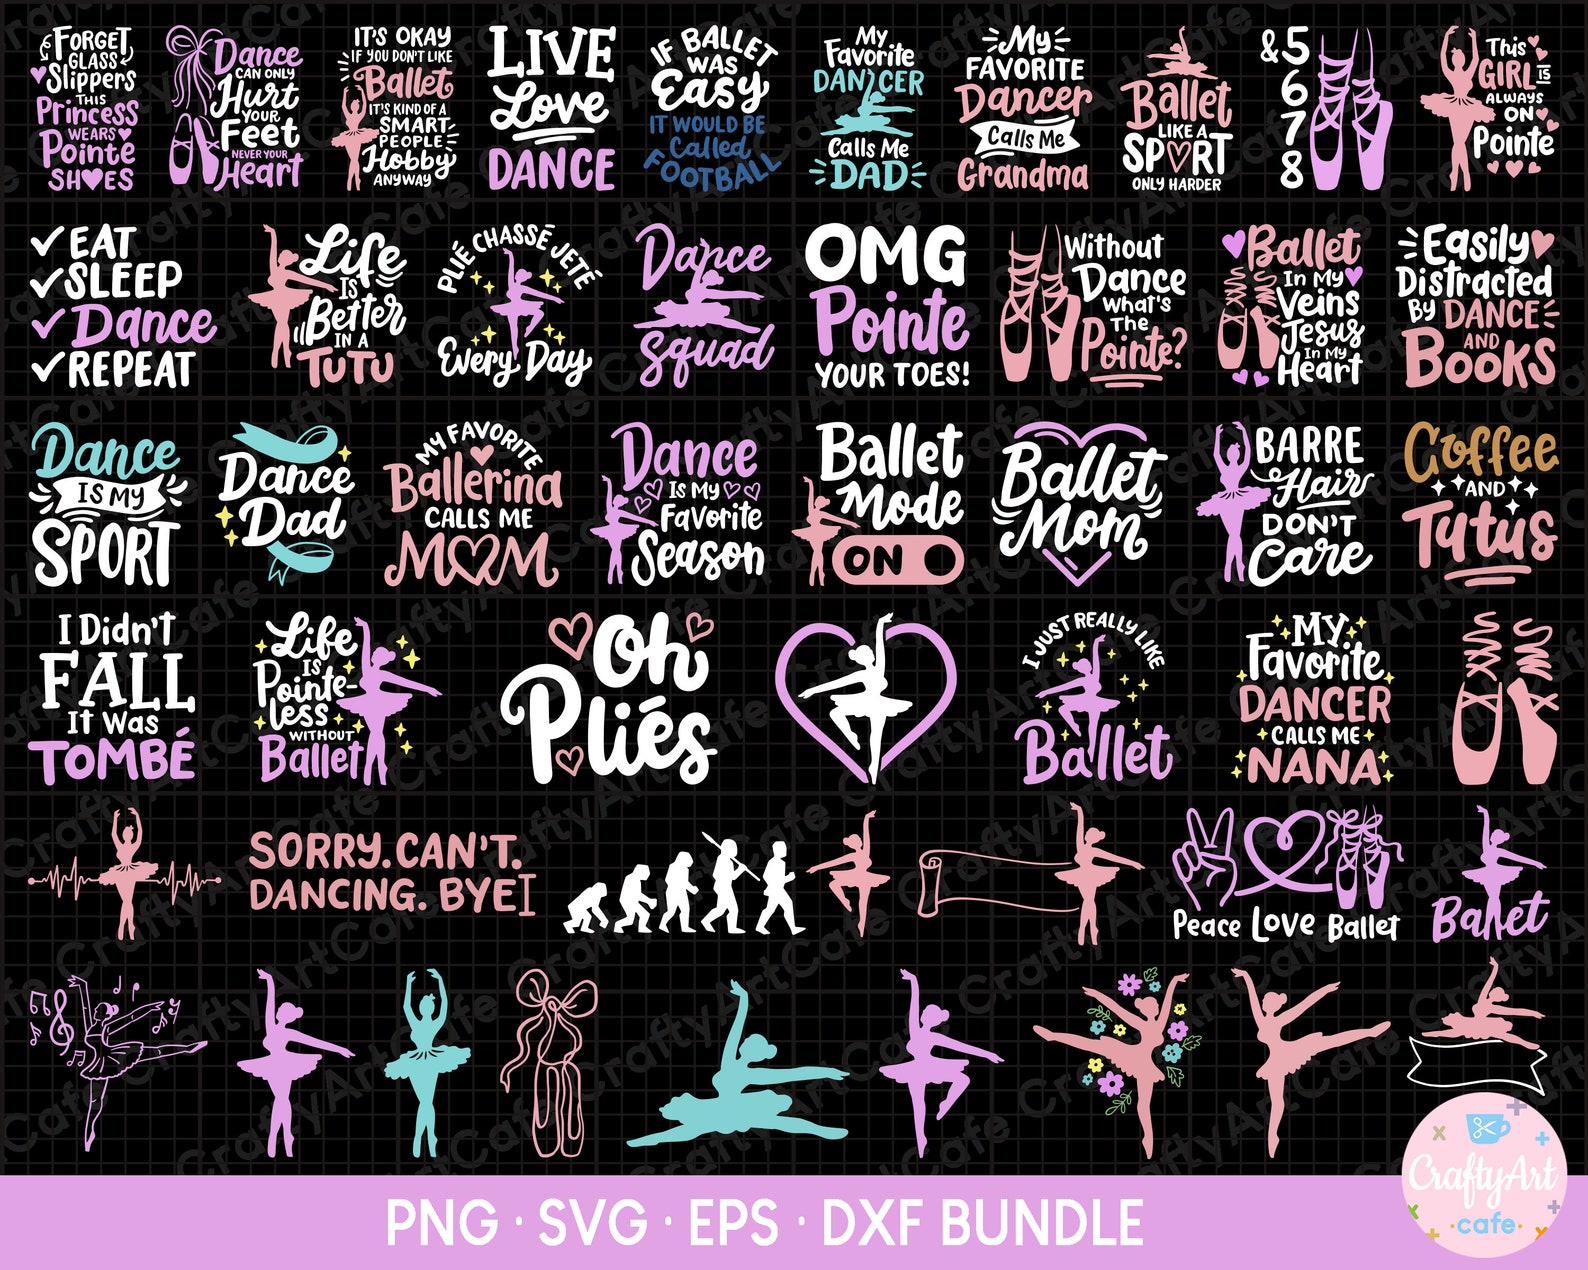 FORGET
GLASS
Slippers
THIS
PRINCESS
WEARS
Pointe
SHOES
Dance
CAN ONLY
Hurt
YOUR
Feet
NEVER YOUR
Heart
IT'S OKAY
IF YOU DON'T LIKE
Ballet
IT'S KIND OF A
SMART
PEOPLE
Hobby
ANYWAY
LIVE
Love
DANCE
IF BALLET
WAS
Easy
IT WOULD BE
Called
FOOTBALL
My
Favorite
DANCER
Calls Me
DAD
My
FAVORITE
Dancer
Calls Me
Grandma
Ballet
LIKE A
SPORT
ONLY HARDER
&5
6
7
8
This
GIRL IS
ALWAYS
ON
Pointe
EAT
SLEEP
Dance
REPEAT
Life
IS
Better
IN A
TUTU
PLIÉ CHASSÉ JETÉ
Every Day
Dance
Squad
OMG
Pointe
YOUR TOES!
Without
Dance
What's
The
Pointe?
Ballet
In My
Veins
Jesus
In My
Heart
Easily
Distracted
By DANCE
AND
BOOKS
Dance
IS MY
SPORT
Dance
Dad
MY FAVORITE
Ballerina
CALLS ME
MOM
Dance
Is My
Favorite
Season
Ballet
Mode
ON
Ballet
Mom
BARRE
Hair
DON'T
Care
Coffee
AND
Tutus
I Didn't
FALL
It Was
TOMBÉ
Life
IS
Pointe-
less
WITHOUT
Ballet
Oh
Pliés
I JUST REALLY LIKE
Ballet
My
Favorite
DANCER
CALLS ME
NANA
SORRY. CAN'T.
DANCING. BYE
Peace Love Ballet
Ballet
PNG · SVG · EPS · DXF BUNDLE
CraftyArt
cafe